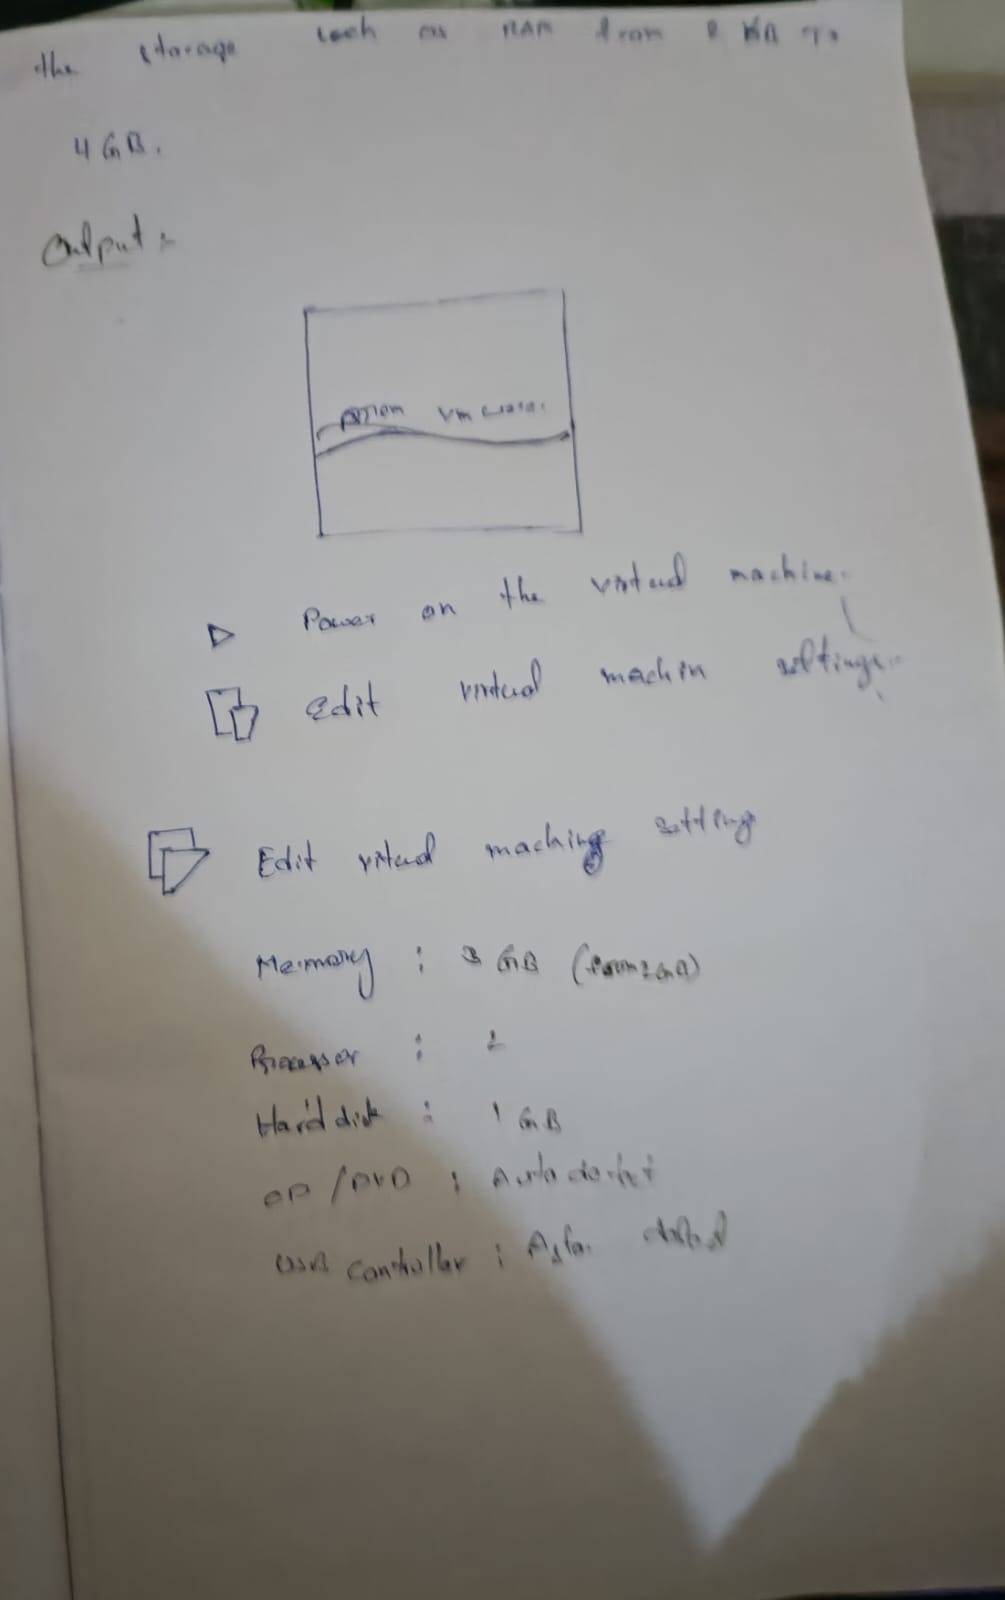 the storage such as RAM from 2 KB To
4 GB.
Output :-
VM
Power on the virtual machine.
Edit virtual machin settings.
Edit virtual maching setting
Memory : 3 GB
Processor : 2
Hard disk : 1 GB
/ DVD : Auto
USB Controller :